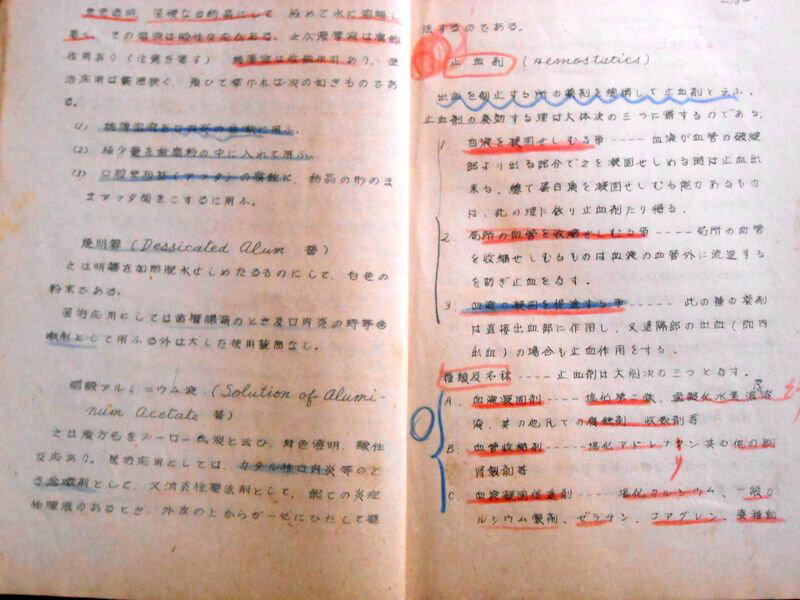 無色透明、堅硬なる結晶にして、極めて水に溶解し
易く、その溶液は酸性反応がある。又が濃厚液は腐蝕
作用あり(注意を要す) 稀薄液は收斂作用あり、歯
治応用は範囲狭く、強ひて挙ぐれば次の如きものであ
る。
(1) 稀薄溶液を口内炎の含漱に用ふ。
(2) 極少量を歯磨粉の中に入れて用ふ。
(3) 口腔粘膜(アフタ)の腐蝕に、結晶の形のま
まアフタ面をこするに用ふ。
焼明礬 (Dessicated Alum 番)
之は明礬を加熱脱水せしめたるものにして、白色の
粉末である。
歯治応用としては歯槽膿漏のとき及口内炎の時等含
漱剤として用ふる外は大した使用範囲なし。
醋酸アルミニウム液 (Solution of Alumi-
num Acetate 番)
之は處方名をブーロー氏液と云ひ、無色澄明、酸性
反応あり。歯治応用としては、カタル性口内炎等のと
き含漱剤として、又消炎性罨法剤として、総ての炎症
性腫脹のあるとき、外皮の上からガーゼにひたして罨
法するのである。
止血剤 (Hemostatics)
出血を制止する所の薬剤を総称して止血剤と云ふ。
止血剤の奏効する理は大体次の三つに歸するのである。
1. 血液を凝固せしむる事 ----- 血液が血管の破綻
部より出る部分で之を凝固せしめる時は止血出
来る、總て蛋白質を凝固せしむる能力あるもの
は、此の理に依り止血剤たり得る。
2. 局所の血管を收縮せしむる事 ----- 局所の血管
を收縮せしむるものは血液の血管外に流逆する
を防ぎ止血をなす。
3. 血液の凝固を促進する事 ----- 此の種の薬剤
は直接出血部に作用し、又遠隔部の出血(肺内
出血)の場合も止血作用をする。
種類及名称 ---- 止血剤は大別次の三つとす。
A. 血液凝固剤 ---- 塩化第二鉄、過酸化水素溶
液、其の他凡ての腐蝕剤、收斂剤等
B. 血管收縮剤 ---- 塩化アドレナリン其の他の副
腎製剤等
C. 血液凝固促進剤 ---- 塩化カルシウム、一般カ
ルシウム製剤、ゼラチン、コアグレン、